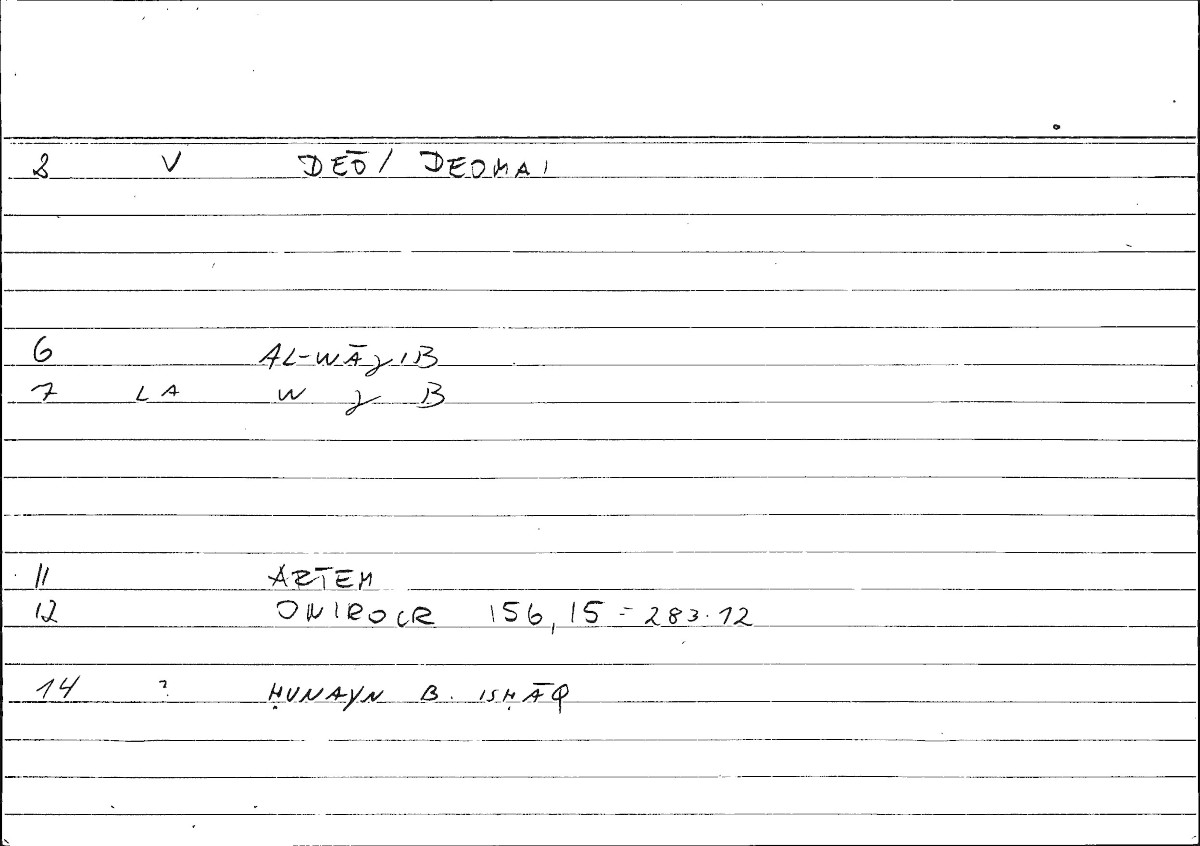 8 V DEŌ/ DEOMAI
6 AL-WĀȷIB
7 LA W ȷ B
11 ARTEM
12 ONIROCR 156,15 = 283.12
14 ? ḤUNAYN B. ISḤĀQ